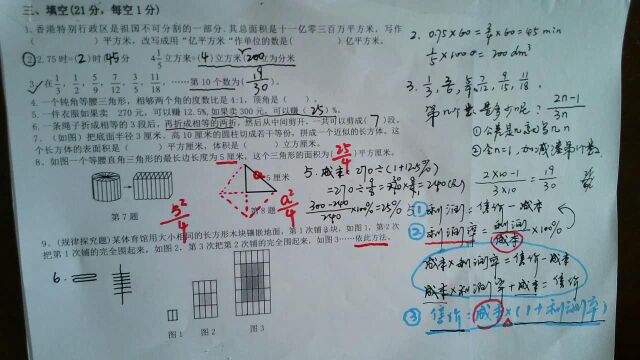 三、填空(21分，每空1分)
1.香港特别行政区是祖国不可分割的一部分，其总面积是十一亿零三百万平方米，写作
( )平方米，改写成用“亿平方米”作单位的数是( )亿平方米。
② 2.75时=(2)时(45)分 4 1/5 立方米=(4)立方米(200)立方分米
3.在 1/3、3/6、5/9、7/12、9/15、11/18、……第10个数为(19/30)
4.一个钝角等腰三角形，相邻两个角的度数比是4:1，顶角是( )。
5.一件衣服如果卖 270元，可以赚12.5%,如果卖300元，可以赚(25)%。
6.一条绳子折成相等的3段后，再折成相等的两折，然后从中间剪开，一共可以剪成(7)段。
7.(如图)把底面半径3厘米，高10厘米的圆柱切成若干等份，拼成一个近似的长方体。这
个长方体的表面积是( )平方厘米，体积是( )立方厘米。
8.如图一个等腰直角三角形的最长边长度为5厘米，这个三角形的面积为(25/4)平方厘米
5厘米
a
5²/4
a²/4
第7题
第8题
9.(规律探究题)某体育馆用大小相同的长方形木块镶嵌地面，第1次铺2块，如图1，第2次
把第1次铺的完全围起来，如图2，第3次把第2次铺的完全围起来，如图3……依此方法，
6.
图1
图2
图3
2. 0.75×60=3/4×60=45min
1/5×1000=200dm³
3. 1/3, 3/6, 5/9, 7/12, 9/15, 11/18,
第n个数是多少呢? (2n-1)/3n
(2×10-1)/(3×10)=19/30
5.成本:270÷(1+12.5%)
=270÷9/8=270×8/9=240(元)
(300-240)/240×100%=25%
① 利润=售价-成本
② 利润率=利润/成本×100%
成本×利润率=售价-成本
成本×利润率+成本=售价
③ 售价=成本×(1+利润率)